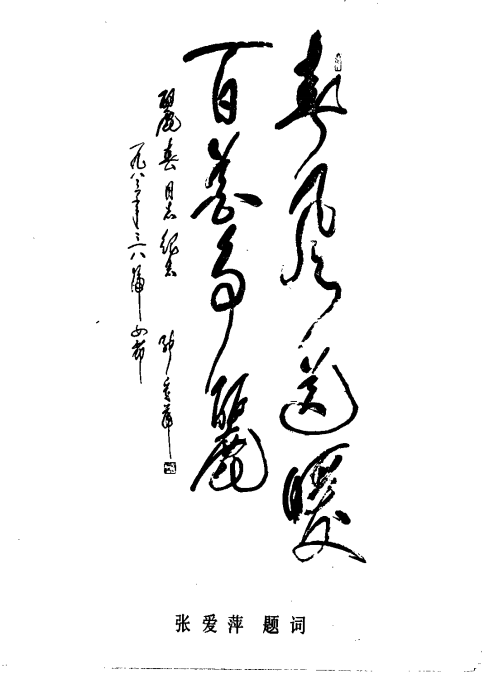 春风送暖
百花争丽
丽春同志纪念
一九八三年三八妇女节
张爱萍
张爱萍 题词